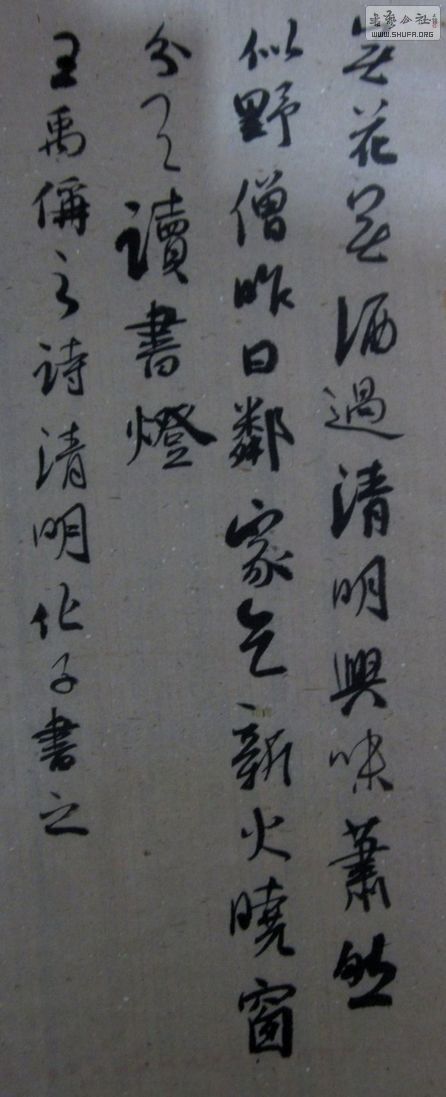 書藝公社
WWW.SHUFR.ORG
無花無酒過清明興味蕭然
似野僧昨日鄰家乞新火曉窗
分與讀書燈
王禹偁之詩清明子書之